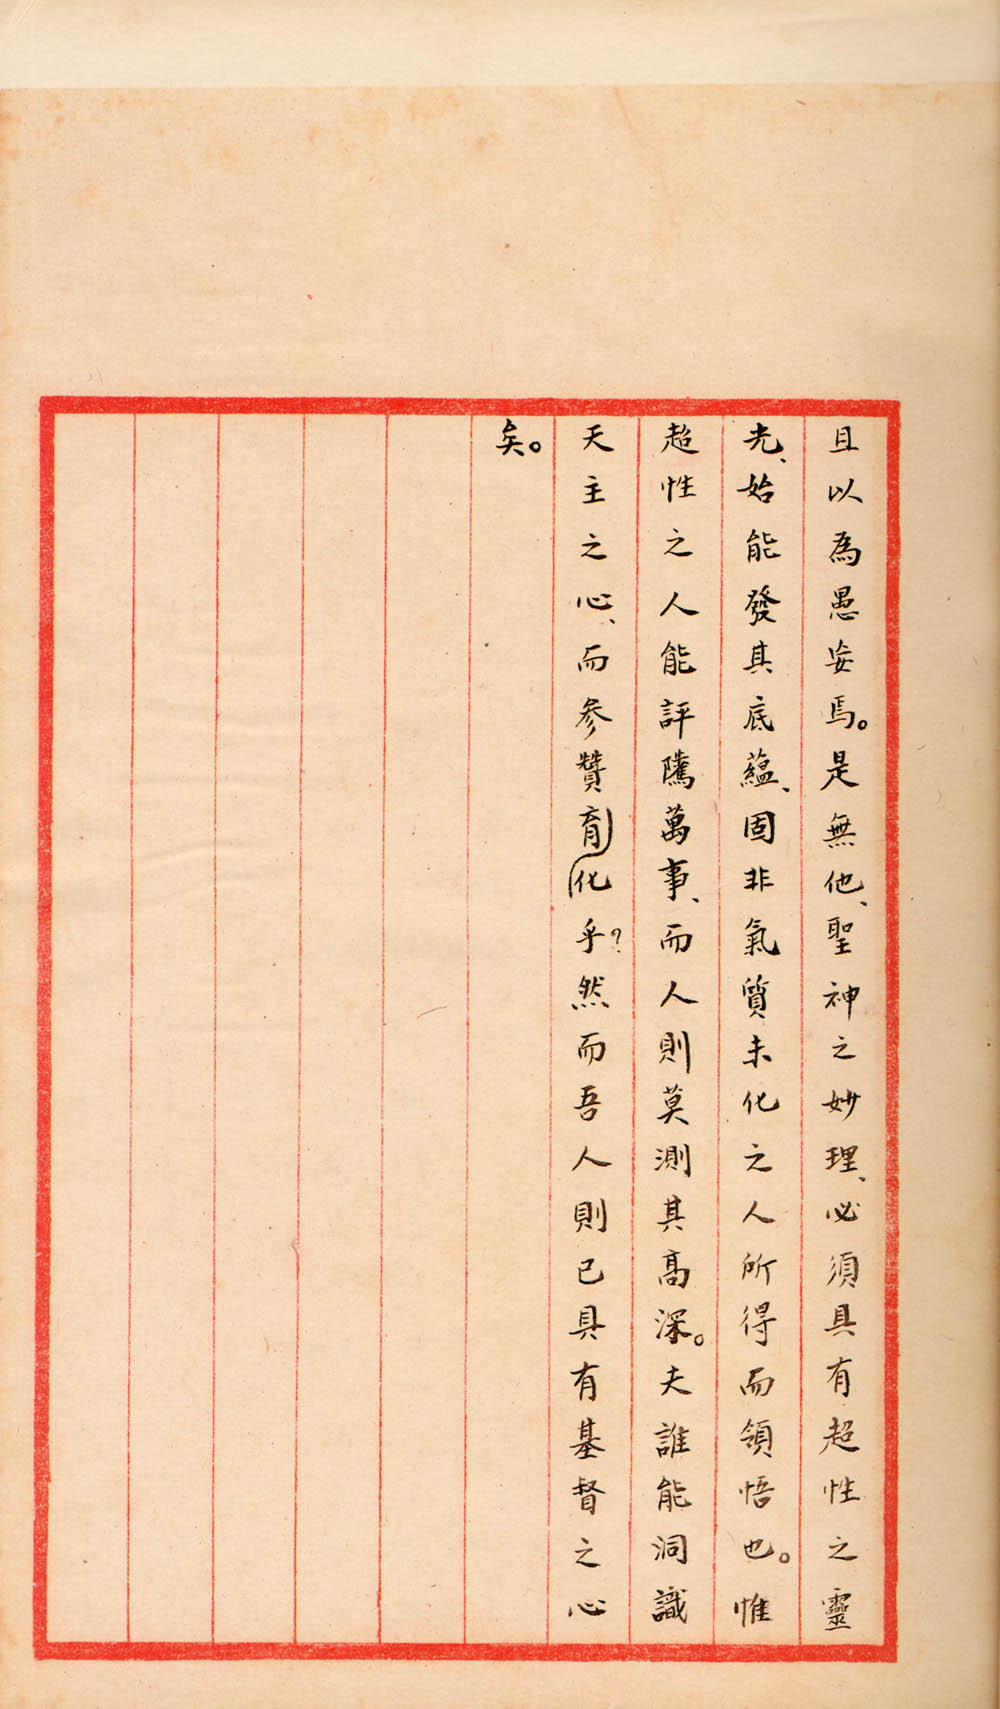 且以為愚妄焉。是無他、聖神之妙理、必須具有超性之靈
光、始能發其底蘊、固非氣質未化之人所得而領悟也。惟
超性之人能評隲萬事、而人則莫測其高深。夫誰能洞識
天主之心、而參贊育化乎?然而吾人則已具有基督之心
矣。